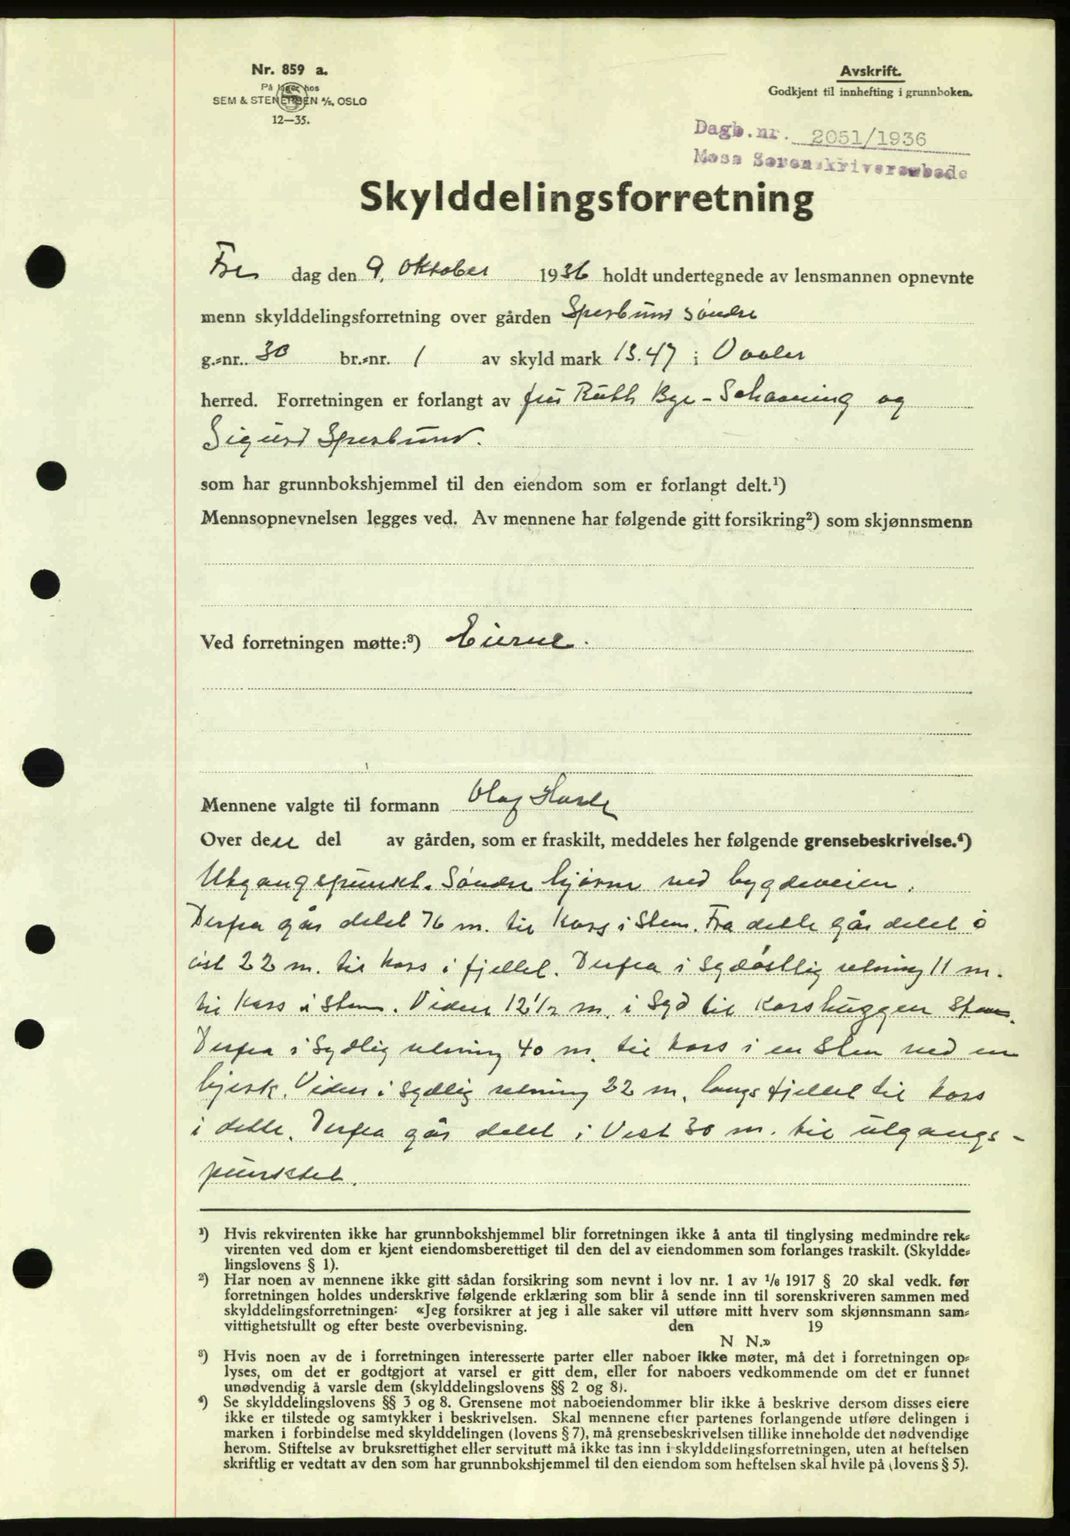 Nr. 859 a.
På lager hos
SEM & STENERSEN A/S, OSLO
12—35.
Avskrift.
Godkjent til innhefting i grunnboken.
Dagb.nr. 2051/1936
Moss Sorenskriverembede
Skylddelingsforretning
Fre dag den 9. oktober 1936 holdt undertegnede av lensmannen opnevnte
menn skylddelingsforretning over gården Sperbund søndre
g.-nr. 30 br.-nr. 1 av skyld mark 13.47 i Vaaler
herred. Forretningen er forlangt av fru Ruth Bye-Schaaning og
Sigurd Sperbund.
som har grunnbokshjemmel til den eiendom som er forlangt delt.¹)
Mennsopnevnelsen legges ved. Av mennene har følgende gitt forsikring²) som skjønnsmenn
Ved forretningen møtte:³) Eierne.
Mennene valgte til formann Olaf
Over den del av gården, som er fraskilt, meddeles her følgende grensebeskrivelse.⁴)
Utgangspunkt. Søndre hjørne ved bygdeveien.
Derfra går delet 76 m. til Kors i Sten. Fra dette går delet i
øst 22 m. til kors i fjellet. Derfra i sydøstlig retning 11 m.
til Kors i Sten. Videre 12 1/2 m. i Syd til Korshuggen Sten.
Derfra i Sydlig retning 40 m. til kors i en Sten ved en
bjerk. Videre i sydlig retning 22 m. langs fjellet til kors
i dette. Derfra går delet i Vest 30 m. til utgangs-
punktet.
¹) Hvis rekvirenten ikke har grunnbokshjemmel blir forretningen ikke å anta til tinglysing medmindre rek-
virenten ved dom er kjent eiendomsberettiget til den del av eiendommen som forlanges fraskilt. (Skyldde-
lingslovens § 1).
²) Har noen av mennene ikke gitt sådan forsikring som nevnt i lov nr. 1 av 1/6 1917 § 20 skal vedk. før
forretningen holdes underskrive følgende erklæring som blir å sende inn til sorenskriveren sammen med
skylddelingsforretningen: «Jeg forsikrer at jeg i alle saker vil utføre mitt hverv som skjønnsmann sam-
vittighetsfullt og efter beste overbevisning. den 19
N N.»
³) Hvis noen av de i forretningen interesserte parter eller naboer ikke møter, må det i forretningen op-
lyses, om det er godtgjort at varsel er gitt dem, eller for naboers vedkommende om det er funnet
unødvendig å varsle dem (skylddelingslovens §§ 2 og 8).
⁴) Se skylddelingslovens §§ 3 og 8. Grensene mot naboeiendommer blir ikke å beskrive dersom disses eiere
ikke er tilstede og samtykker i beskrivelsen. Skal mennene efter partenes forlangende utføre delingen i
marken i forbindelse med skylddelingen (lovens § 7), må grensebeskrivelsen tillike inneholde det nødvendige
herom. Stiftelse av bruksrettighet eller servitutt må ikke tas inn i skylddelingsforretningen, uten at heftelsen
skriftlig er vedtatt av den som har grunnbokshjemmel til den eiendom som heftelsen skal hvile på (lovens § 5).